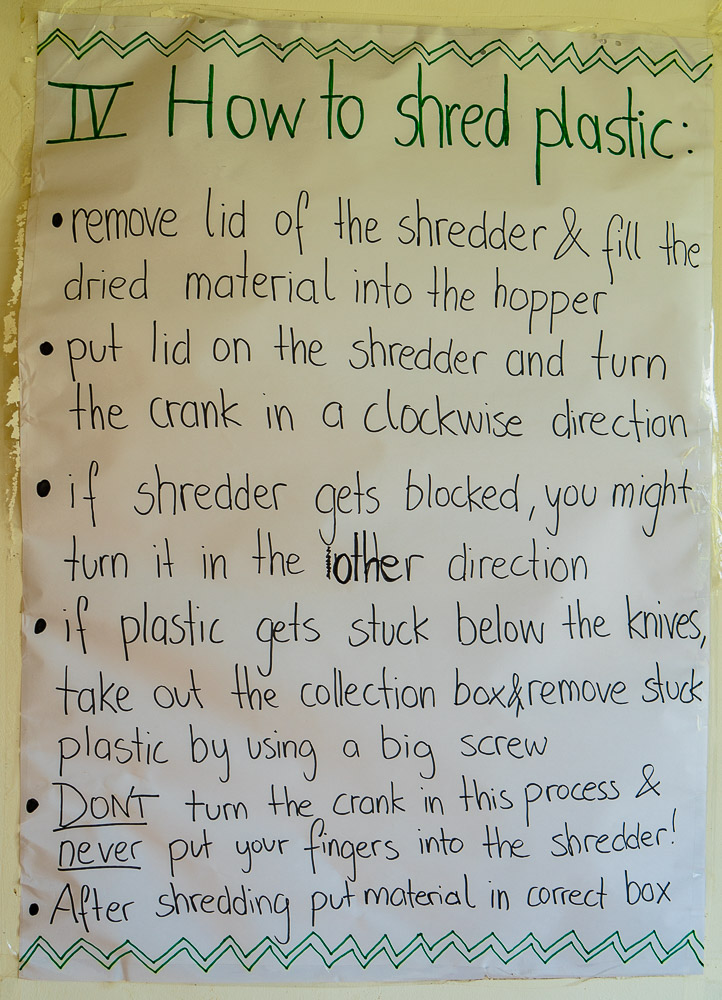 IV How to shred plastic:
• remove lid of the shredder & fill the
dried material into the hopper
• put lid on the shredder and turn
the crank in a clockwise direction
• if shredder gets blocked, you might
turn it in the other direction
• if plastic gets stuck below the knives,
take out the collection box & remove stuck
plastic by using a big screw
• DONT turn the crank in this process &
never put your fingers into the shredder!
• After shredding put material in correct box